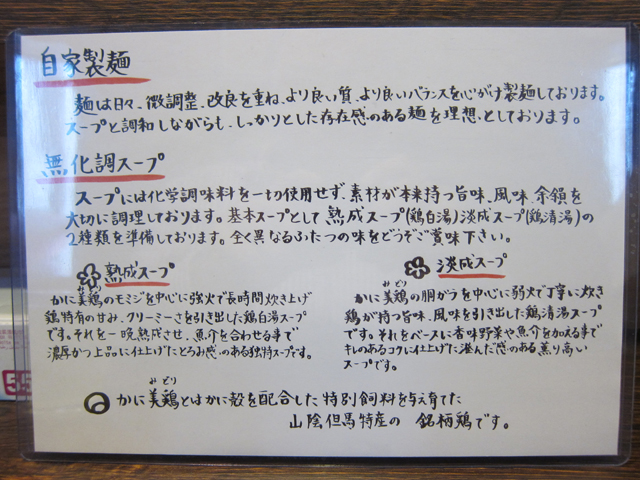 自家製麺
麺は日々、微調整、改良を重ね、より良い質、より良いバランスを心がけ製麺しております。
スープと調和しながらも、しっかりとした存在感のある麺を理想としております。
無化調スープ
スープには化学調味料を一切使用せず、素材が本来持つ旨味、風味、余韻を
大切に調理しております。基本スープとして熟成スープ(鶏白湯)淡成スープ(鶏清湯)の
2種類を準備しております。全く異なるふたつの味をどうぞご賞味下さい。
熟成スープ
みどり
かに美鶏のモミジを中心に強火で長時間炊き上げ
鶏特有の甘み、クリーミーさを引き出した鶏白湯スープ
です。それを一晩熟成させ、魚介を合わせる事で
濃厚かつ上品に仕上げたとろみ感のある独特スープです。
淡成スープ
みどり
かに美鶏の胴ガラを中心に弱火で丁寧に炊き
鶏が持つ旨味、風味を引き出した鶏清湯スープ
です。それをベースに香味野菜や魚介を加える事で
キレのあるコクに仕上げた澄んだ感のある薫り高い
スープです。
みどり
かに美鶏とはかに殻を配合した特別飼料を与え育てた
山陰但馬特産の 銘柄鶏です。